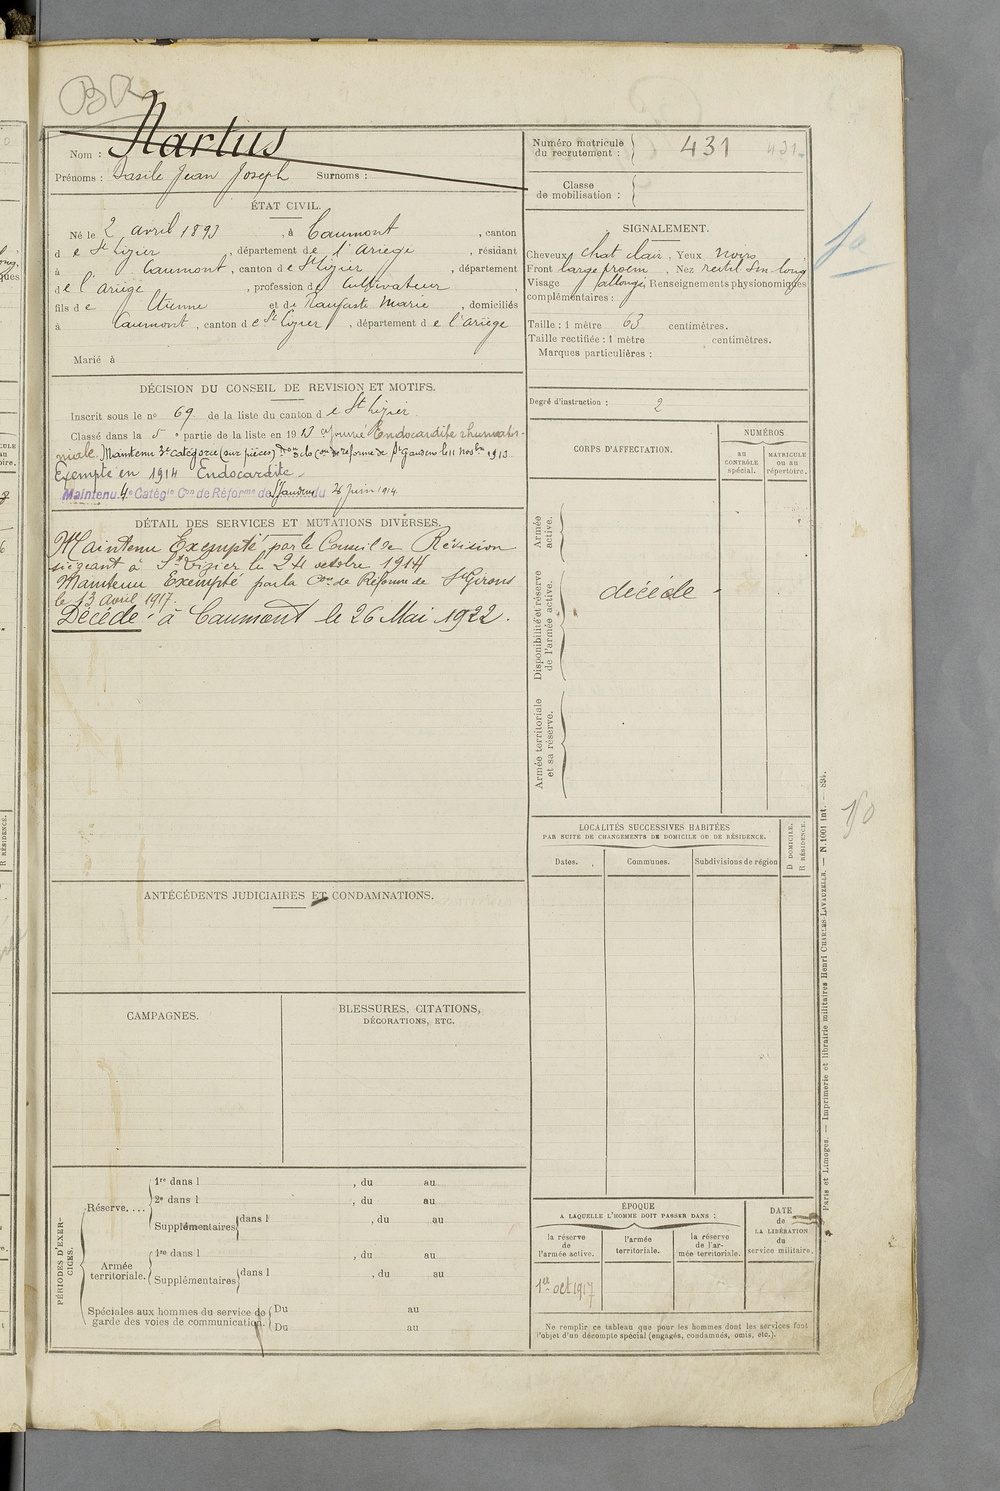 BA
Nom : Nartus
Prénoms : Basile Jean Joseph Surnoms :
ÉTAT CIVIL.
Né le 2 avril 1893, à Caumont, canton
de St Lizier, département de l'Ariège, résidant
à Caumont, canton de St Lizier, département
de l'Ariège, profession de Cultivateur,
fils de Etienne et de Naufaste Marie, domiciliés
à Caumont, canton de St Lizier, département de l'Ariège
Marié à
DÉCISION DU CONSEIL DE REVISION ET MOTIFS.
Inscrit sous le no 69 de la liste du canton de St Lizier.
Classé dans la 5e partie de la liste en 1913 ajourné Endocardite rhumatis-
male. Maintenu 3e catégorie (sur pièces) de réforme de St Gaudens le 11 Novbre 1913.
Exempté en 1914 Endocardite.
Maintenu 4e Catégie Con de Réforme de St Gaudens du 26 Juin 1914.
DÉTAIL DES SERVICES ET MUTATIONS DIVERSES.
Maintenu Exempté par le Conseil de Révision
siégeant à St Lizier le 24 octobre 1914
Maintenu Exempté par la Con de Réforme de St Girons
le 13 avril 1917.
Décédé à Caumont le 26 Mai 1922.
ANTÉCÉDENTS JUDICIAIRES ET CONDAMNATIONS.
CAMPAGNES.
BLESSURES, CITATIONS,
DÉCORATIONS, ETC.
PÉRIODES D'EXER-
CICES.
Réserve....
1re dans l , du au
2e dans l , du au
Supplémentaires dans l , du au
Armée
territoriale.
1re dans l , du au
Supplémentaires dans l , du au
Spéciales aux hommes du service de
garde des voies de communication.
Du au
Du au
Numéro matricule
du recrutement : 431 431
Classe
de mobilisation :
SIGNALEMENT.
Cheveux chat clair, Yeux noirs
Front large proem, Nez rectil Sin long
Visage allongé, Renseignements physionomiques
complémentaires :
Taille : 1 mètre 63 centimètres.
Taille rectifiée : 1 mètre centimètres.
Marques particulières :
Degré d'instruction : 2
CORPS D'AFFECTATION.
NUMÉROS
au
CONTRÔLE
spécial.
MATRICULE
ou au
répertoire.
Armée
active.
Disponibilité et réserve
de l'armée active.
décédé
Armée territoriale
et sa réserve.
LOCALITÉS SUCCESSIVES HABITÉES
PAR SUITE DE CHANGEMENTS DE DOMICILE OU DE RÉSIDENCE.
Dates.
Communes.
Subdivisions de région
D DOMICILE.
R RÉSIDENCE.
ÉPOQUE
A LAQUELLE L'HOMME DOIT PASSER DANS :
la réserve
de
l'armée active.
l'armée
territoriale.
la réserve
de l'ar-
mée territoriale.
DATE
de
LA LIBÉRATION
du
service militaire.
1er oct 1917
Ne remplir ce tableau que pour les hommes dont les services font
l'objet d'un décompte spécial (engagés, condamnés, omis, etc.).
Paris et Limoges. — Imprimerie et librairie militaires Henri CHARLES-LAVAUZELLE. — N. 1001 int. — 894.